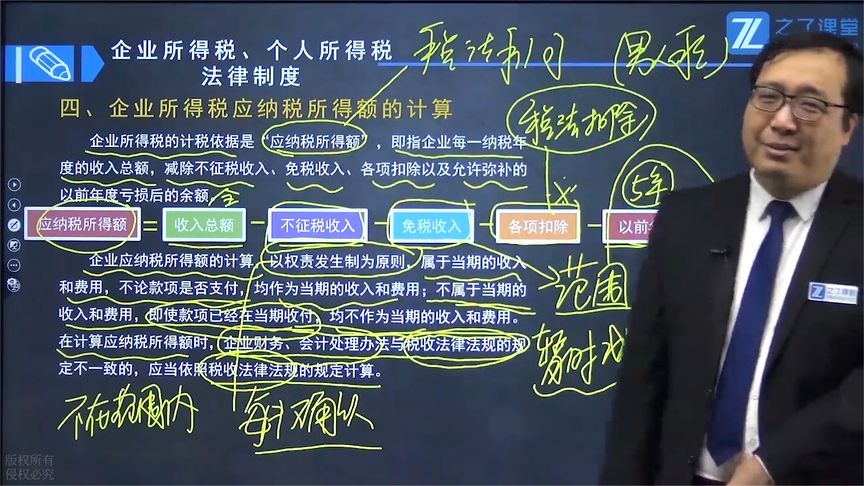 企业所得税、个人所得税
法律制度
之了课堂
四、企业所得税应纳税所得额的计算
税法扣除
企业所得税的计税依据是“应纳税所得额”，即指企业每一纳税年
度的收入总额，减除不征税收入、免税收入、各项扣除以及允许弥补的
以前年度亏损后的余额。
5年
应纳税所得额 = 收入总额 - 不征税收入 - 免税收入 - 各项扣除 - 以前
企业应纳税所得额的计算，以权责发生制为原则，属于当期的收入
和费用，不论款项是否支付，均作为当期的收入和费用；不属于当期的
收入和费用，即使款项已经在当期收付，均不作为当期的收入和费用。
在计算应纳税所得额时，企业财务、会计处理办法与税收法律法规的规
定不一致的，应当依照税收法律法规的规定计算。
范围
不在范围内
之了课堂
版权所有
侵权必究